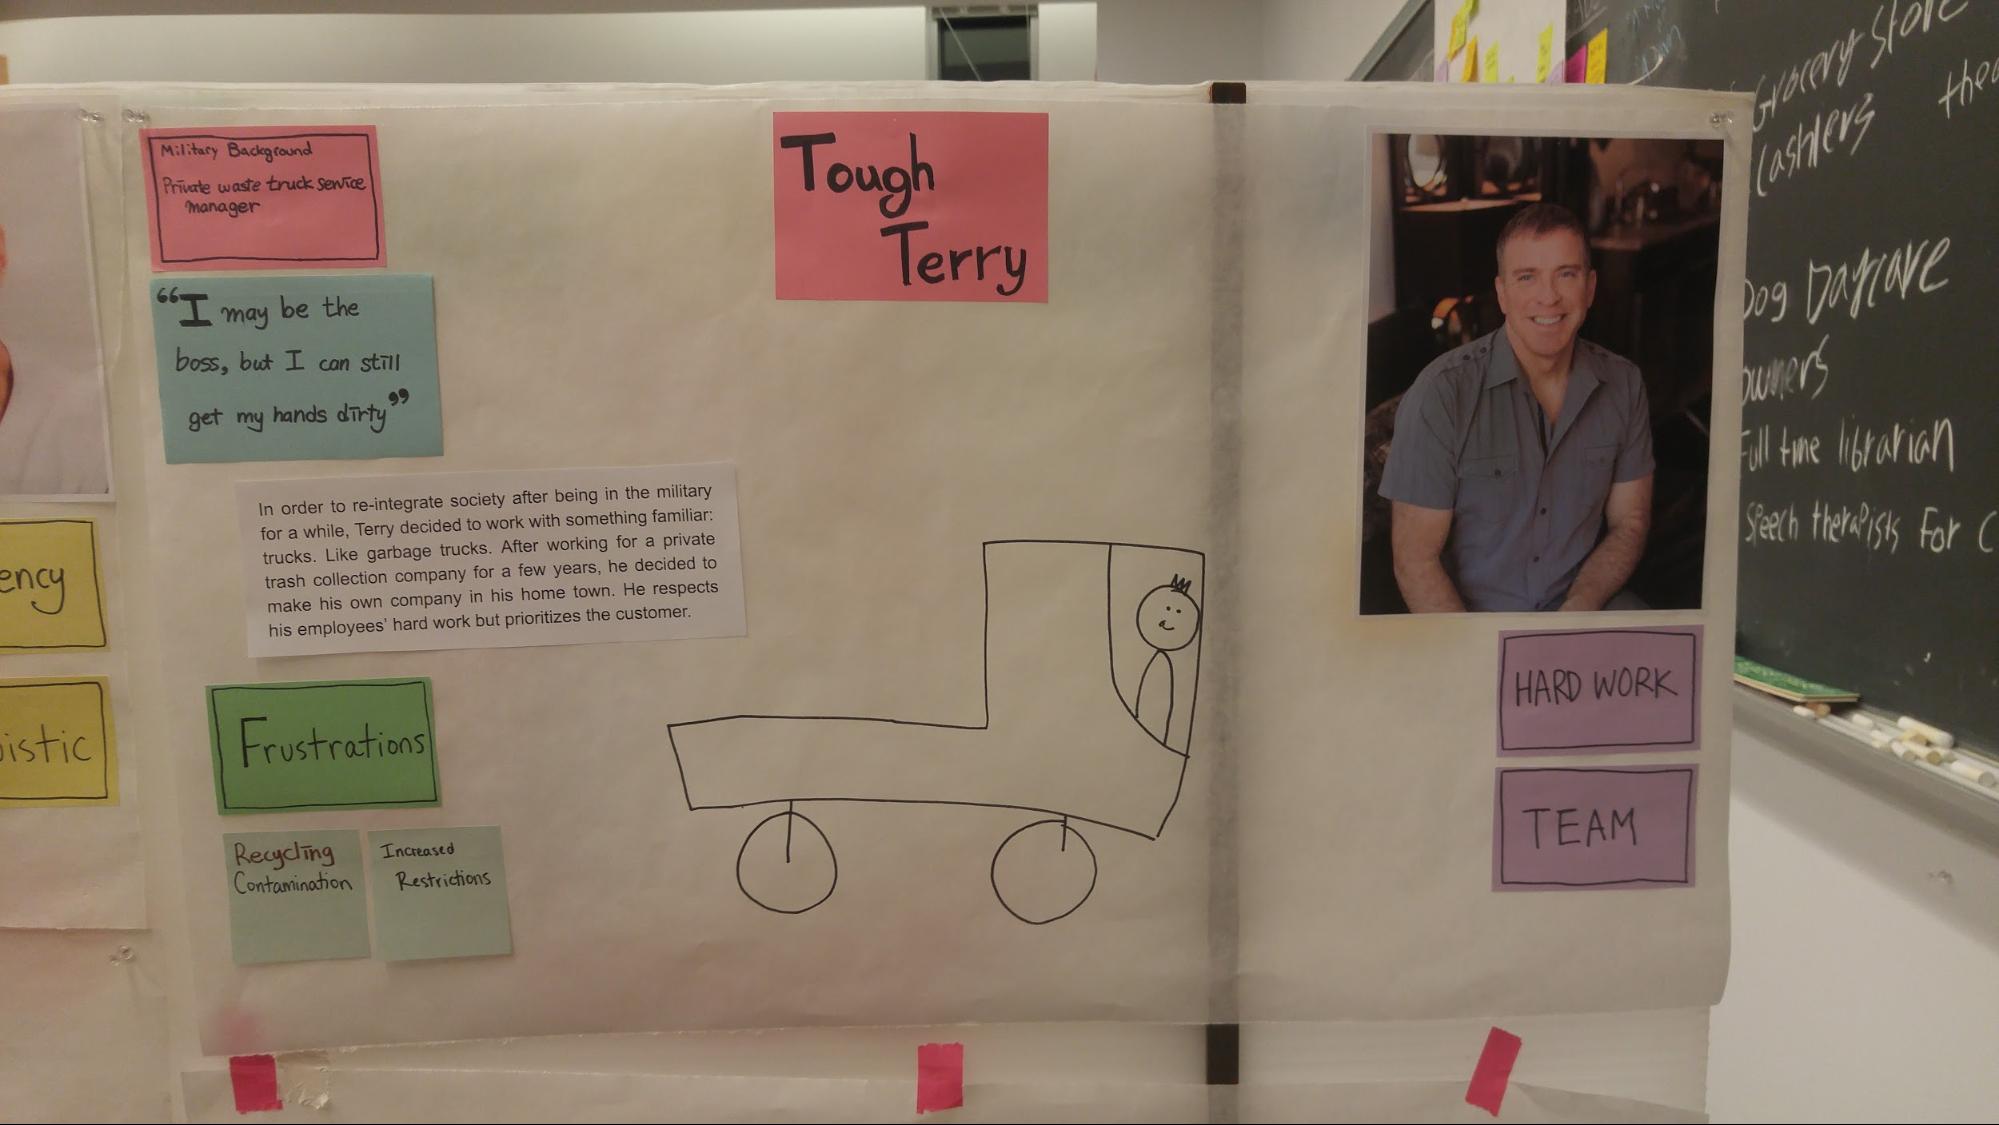 Military Background
Private waste truck service
manager
"I may be the
boss, but I can still
get my hands dirty"
Tough
Terry
In order to re-integrate society after being in the military
for a while, Terry decided to work with something familiar:
trucks. Like garbage trucks. After working for a private
trash collection company for a few years, he decided to
make his own company in his home town. He respects
his employees' hard work but prioritizes the customer.
Frustrations
Recycling
Contamination
Increased
Restrictions
HARD WORK
TEAM
ency
istic
Grocery Store
Cashiers
Dog Daycare
owners
Full time librarian
Speech therapists For C